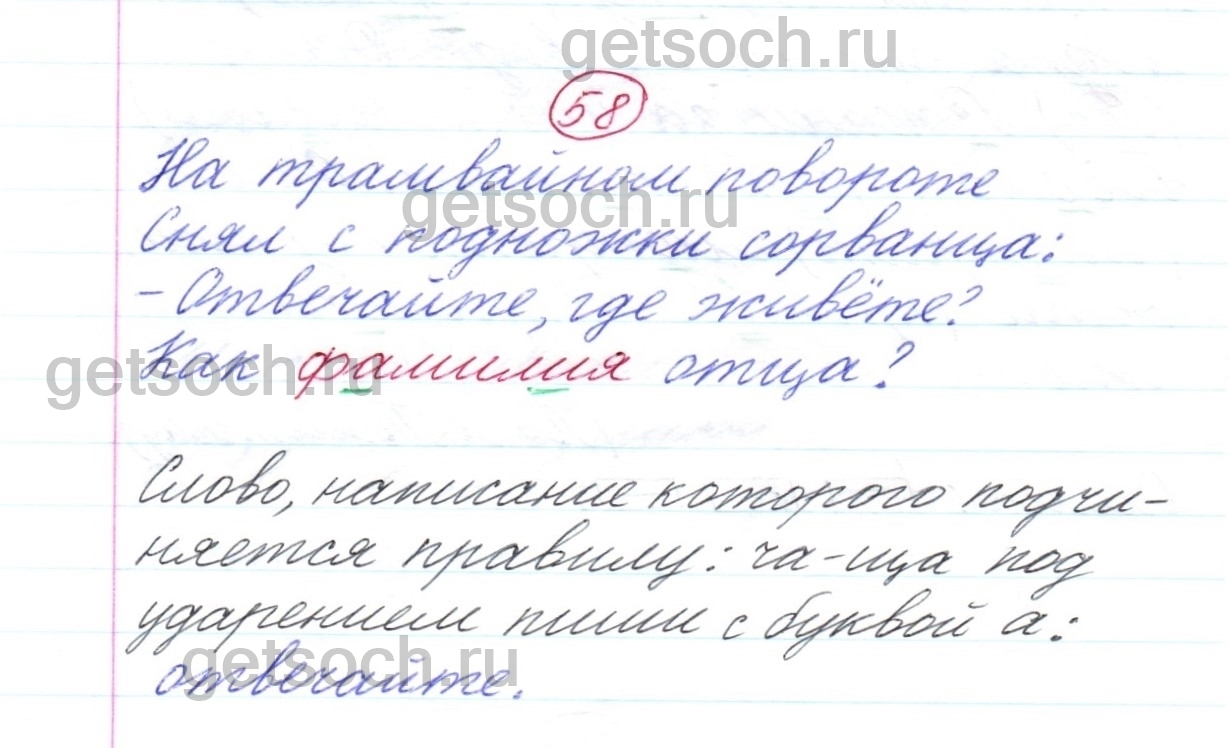 getsoch.ru
58
На трамвайном повороте
getsoch.ru
Снял с подножки сорванца:
– Отвечайте, где живёте?
getsoch.ru
Как фамилия отца?
Слово, написание которого подчи-
няется правилу: ча-ща под
ударением пиши с буквой а:
getsoch.ru
отвечайте.